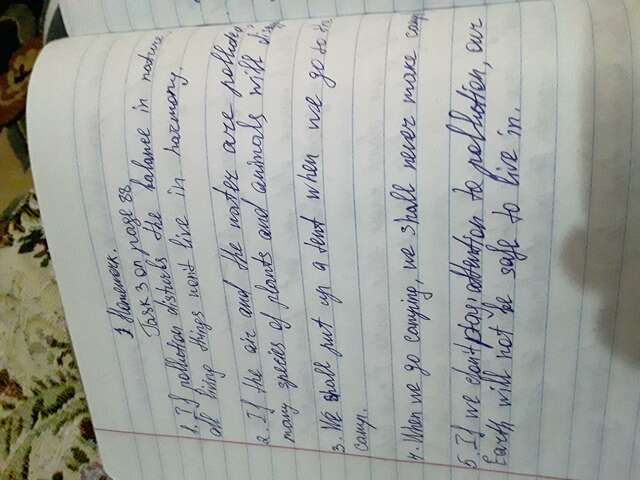 Homework.
Task 3 on page 88.
1. If pollution disturbs the balance in nature,
all living things wont live in harmony.
2. If the air and the water are pollute
many species of plants and animals will
3. We shall put up a tent when we go to th
camp.
4. When we go camping, we shall never make
5. If we dont pay attention to pollution, our
Earth will not be safe to live in.